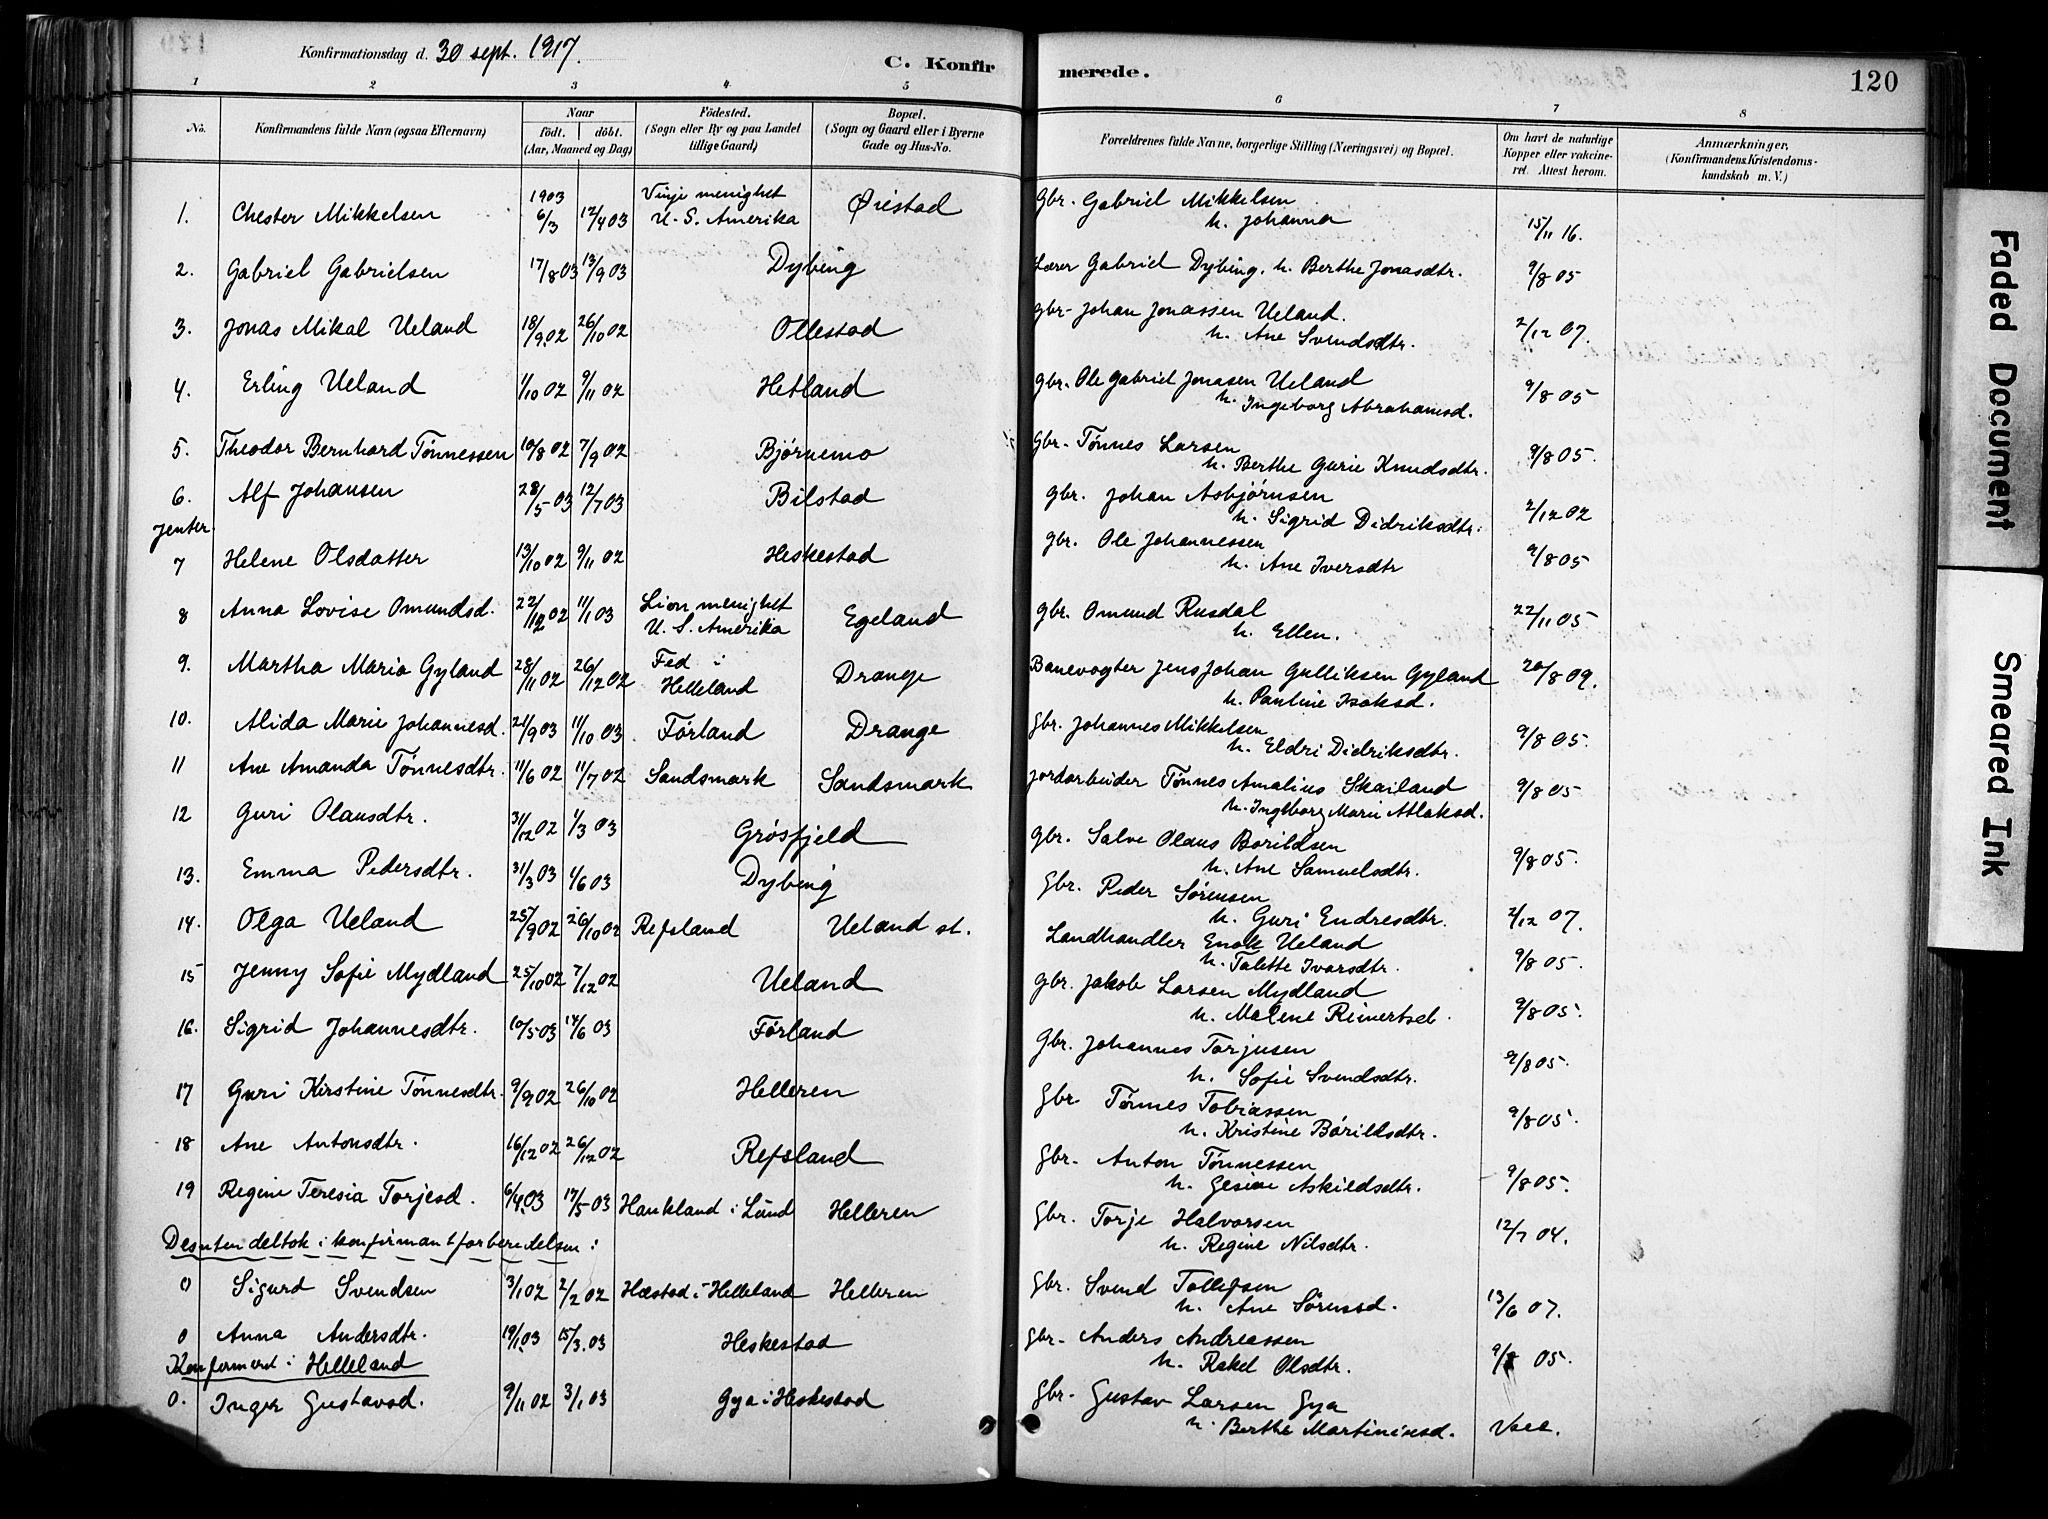 Konfirmationsdag d. 30 sept. 1917.
C. Konfirmerede.
120
1 2 3 4 5 6 7 8
No.
Konfirmandens fulde Navn (ogsaa Efternavn)
Naar
födt. döbt.
(Aar, Maaned og Dag)
Födested.
(Sogn eller By og paa Landet
tillige Gaard)
Bopæl.
(Sogn og Gaard eller i Byerne
Gade og Hus-No.
Forældrenes fulde Navne, borgerlige Stilling (Næringsvei) og Bopæl.
Om havt de naturlige
Kopper eller vakcine-
ret. Attest herom.
Anmærkninger,
(Konfirmandens Kristendoms-
kundskab m. V.)
1. Chester Mikkelsen 1903 6/3 12/4 03 Vinje menighet U. S. Amerika Øiestad Gbr. Gabriel Mikkelsen
h. Johanna 15/11 16.
2. Gabriel Gabrielsen 17/8 03 13/9 03 Dybing Lærer Gabriel Dybing, h. Berthe Jonasdtr. 9/8 05
3. Jonas Mikal Ueland 18/9 02 26/10 02 Ollestad gbr. Johan Jonassen Ueland.
h. Ane Svendsdtr. 2/12 07.
4. Erling Ueland 1/10 02 9/11 02 Hetland gbr. Ole Gabriel Jonasen Ueland
h. Ingeborg Abrahamsd. 9/8 05
5. Theodor Bernhard Tønnessen 10/8 02 7/9 02 Bjørnemo gbr. Tønnes Larsen
h. Berthe Gurie Knudsdtr. 9/8 05.
6. Alf Johansen 28/5 03 12/7 03 Bilstad gbr. Johan Asbjørnsen
h. Sigrid Didriksdtr. 2/12 02
Jenter.
7 Helene Olsdatter 13/10 02 9/11 02 Heskestad gbr. Ole Johannessen
h. Ane Iversdtr 9/8 05
8 Anna Lovise Omundsd. 22/12 02 11/1 03 Lion menighet U. S. Amerika Egeland gbr. Omund Rusdal
h. Ellen. 22/11 05
9. Martha Maria Gyland 28/11 02 26/12 02 Fed i Helleland Drange Banevogter Jens Johan Gulliksen Gyland
h. Pauline Isaksd. 20/8 09.
10. Alida Marie Johannesd. 21/9 03 11/10 03. Førland Drange Gbr. Johannes Mikkelsen
h. Eldri Didriksdtr. 9/8 05.
11 Ane Amanda Tønnesdtr. 11/6 02 11/7 02 Sandsmark Sandsmark Jordarbeider Tønnes Amalius Skailand
h. Ingeborg Marie Atlaksd. 9/8 05
12 Guri Olausdtr. 31/12 02 1/3 03 Grøsfjeld gbr. Salve OlausBorildsen
h. Ane Samuelsdtr. 9/8 05.
13. Emma Pedersdtr. 31/3 03 1/6 03 Dybing Gbr. Peder Sørensen
h. Guri Endresdtr. 2/12 07.
14. Olga Ueland 25/9 02 26/10 02 Refsland Ueland st. Landhandler Enok Ueland
h. Talette Ivarsdtr. 9/8 05.
15 Jenny Sofie Mydland 25/10 02 7/12 02 Ueland gbr. Jakob Larsen Mydland
h. Malene Reinertsd. 9/8 05.
16. Sigrid Johannesdtr. 10/5 03 14/6 03 Førland Gbr. Johannes Torjusen
h. Sofie Svendsdtr. 9/8 05.
17 Guri Kirstine Tønnesdtr. 9/9 02 26/10 02 Helleren Gbr Tønnes Tobiassen
h. Kristine Børildsdtr. 9/8 05.
18 Ane Antonsdtr. 16/12 02 26/12 02 Refsland Gbr. Anton Tønnessen
h. Gesine Askildsdtr. 9/8 05.
19 Regine Teresia Torjesd. 6/4 03 17/5 03 Haukland i Lund Helleren Gbr. Torje Halvorsen
h. Regine Nilsdtr. 12/7 04.
Desuten deltok i konfirmantforberedelsen:
0 Sigurd Svendsen 3/1 02 2/2 02 Hæstad i Helleland Helleren Gbr. Svend Tollefsen
h. Ane Sørensd. 13/6 07.
0 Anna Andersdtr. 19/1 03 15/3 03 Heskestad gbr. Anders Andreassen
h. Rakel Olsdtr. 9/8 05.
Konfirmert i Helleland
0. Inger Gustavsd. 9/11 02 3/1 03 Gya i Heskestad gbr. Gustav Larsen Gya
h. Berthe Martinisd. Vacc.
Faded Document
Smeared Ink